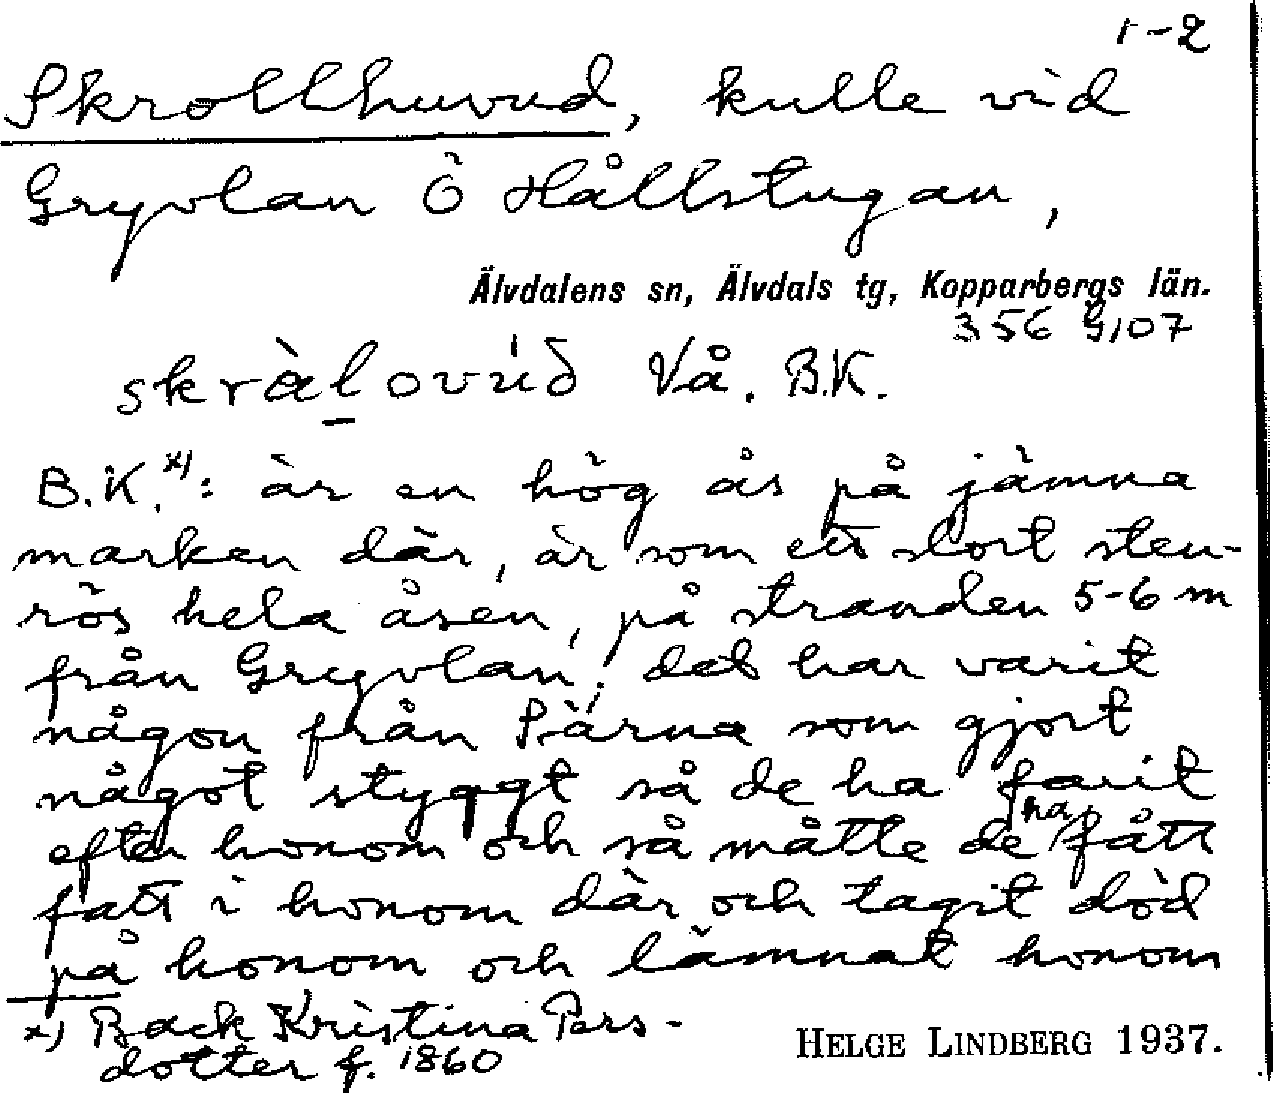 1-2
Skrollhuvud, kulle vid
Gryvlan Ö Hållstugan,
Älvdalens sn, Älvdals tg, Kopparbergs län.
356 G107
skràlovúð Vå. B.K.
B.K.x): är en hög ås på jämna
marken där, är som ett stort sten-
rös hela åsen, på stranden 5-6 m
från Gryvlan; det har varit
någon från Särna som gjort
något styggt så de ha farit
efter honom och så måtte de ha fått
fatt i honom där och tagit död
på honom och lämnat honom
x) Back Kristina Pers-
dotter f. 1860
HELGE LINDBERG 1937.